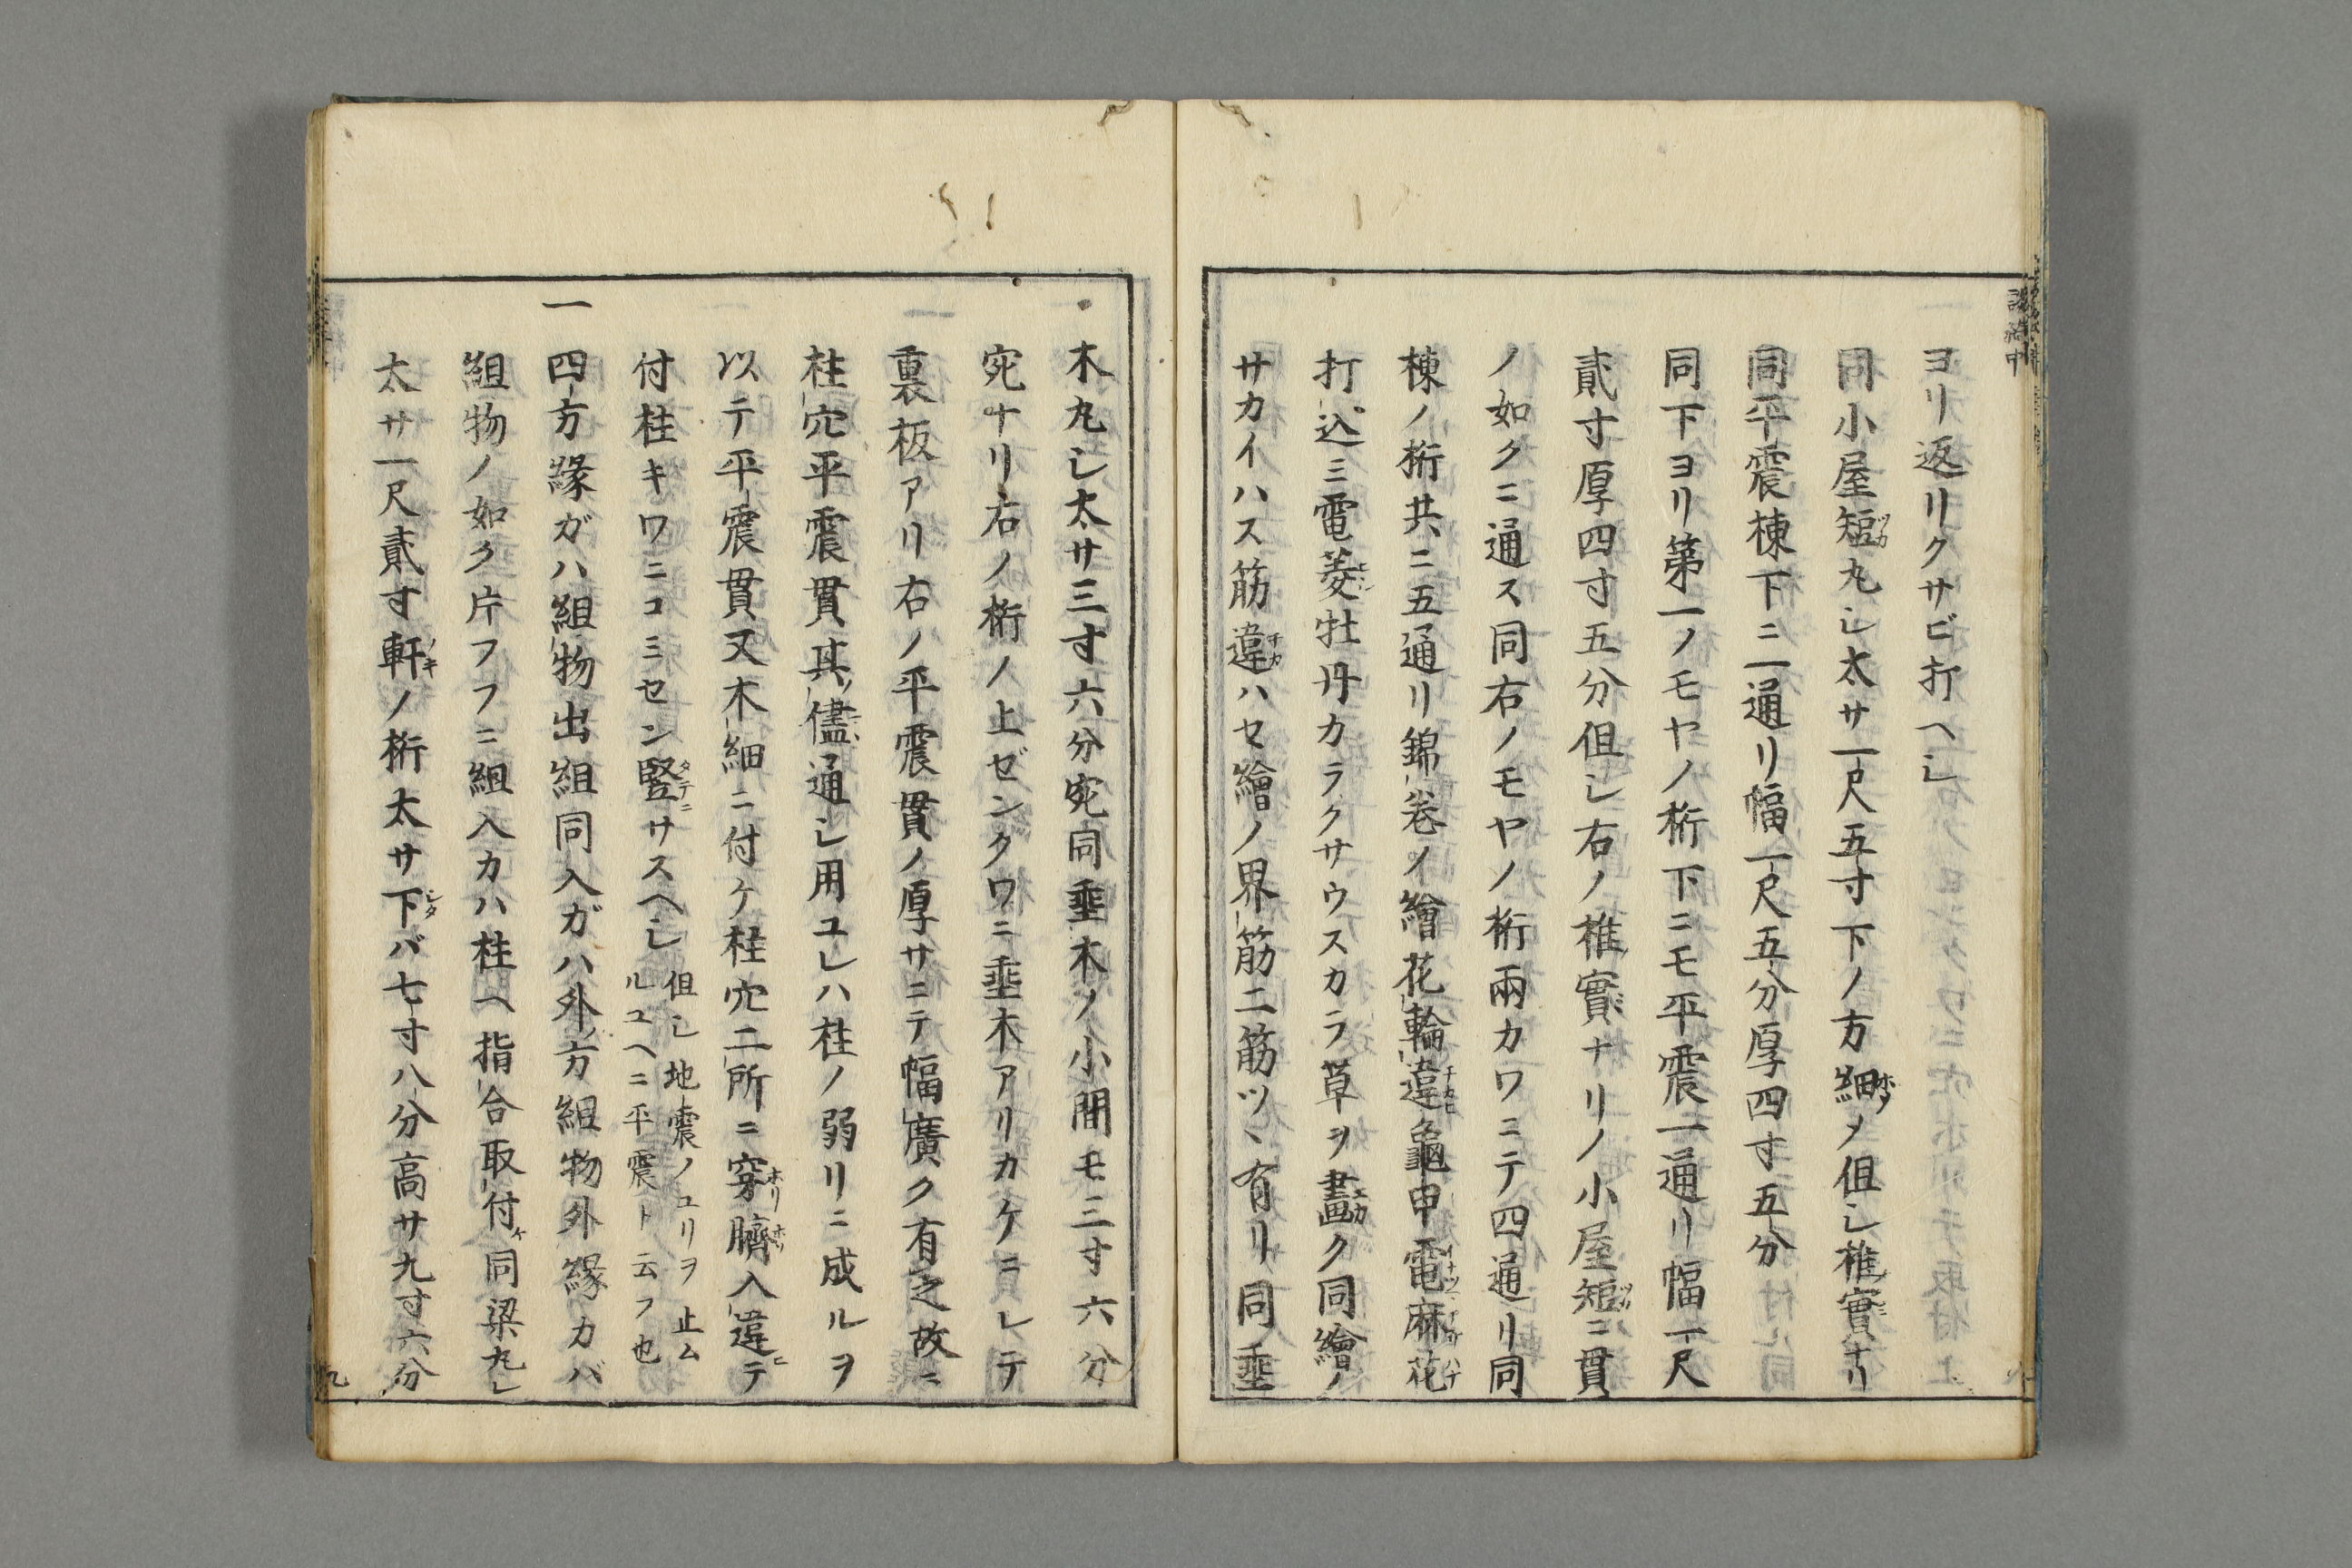 ヨリ返リクサビ打ヘシ
同小屋短丸シ太サ一尺五寸下ノ方細メ但シ椎實ナリ
同平震棟下ニ一通リ幅一尺五分厚四寸五分
同下ヨリ第一ノモヤノ桁下ニモ平震一通リ幅一尺
貳寸厚四寸五分但シ右ノ椎實ナリノ小屋短ニ貫
ノ如クニ通ス同右ノモヤノ桁兩カワニテ四通リ同
棟ノ桁共ニ五通リ錦卷ノ繪花輪違龜甲電麻花
打込ミ電菱牡丹カラクサウスカラ草ヲ畫ク同繪ノ
サカイハス筋違ハセ繪ノ界筋二筋ツヽ有リ同垂
木丸シ太サ三寸六分宛同垂木ノ小間モ三寸六分
宛ナリ右ノ桁ノ上ゼンクワニ垂木アリカケニシテ
裏板アリ右ノ平震貫ノ厚サニテ幅廣ク有之故ニ
柱穴平震貫其儘通シ用ユレハ柱ノ弱リニ成ルヲ
以テ平震貫又木細ニ付ケ柱穴二所ニ穿臍入違テ
付柱キワニコミセン竪サスヘシ但シ地震ノユリヲ止ム
ルユヘニ平震ト云フ也
一四方縁ガハ組物出組同入ガハ外方組物外縁カバ
組物ノ如ク片フフニ組入カハ柱ヘ指合取付ケ同梁丸シ
太サ一尺貳寸軒ノ桁太サ下バ七寸八分高サ九寸六分
九